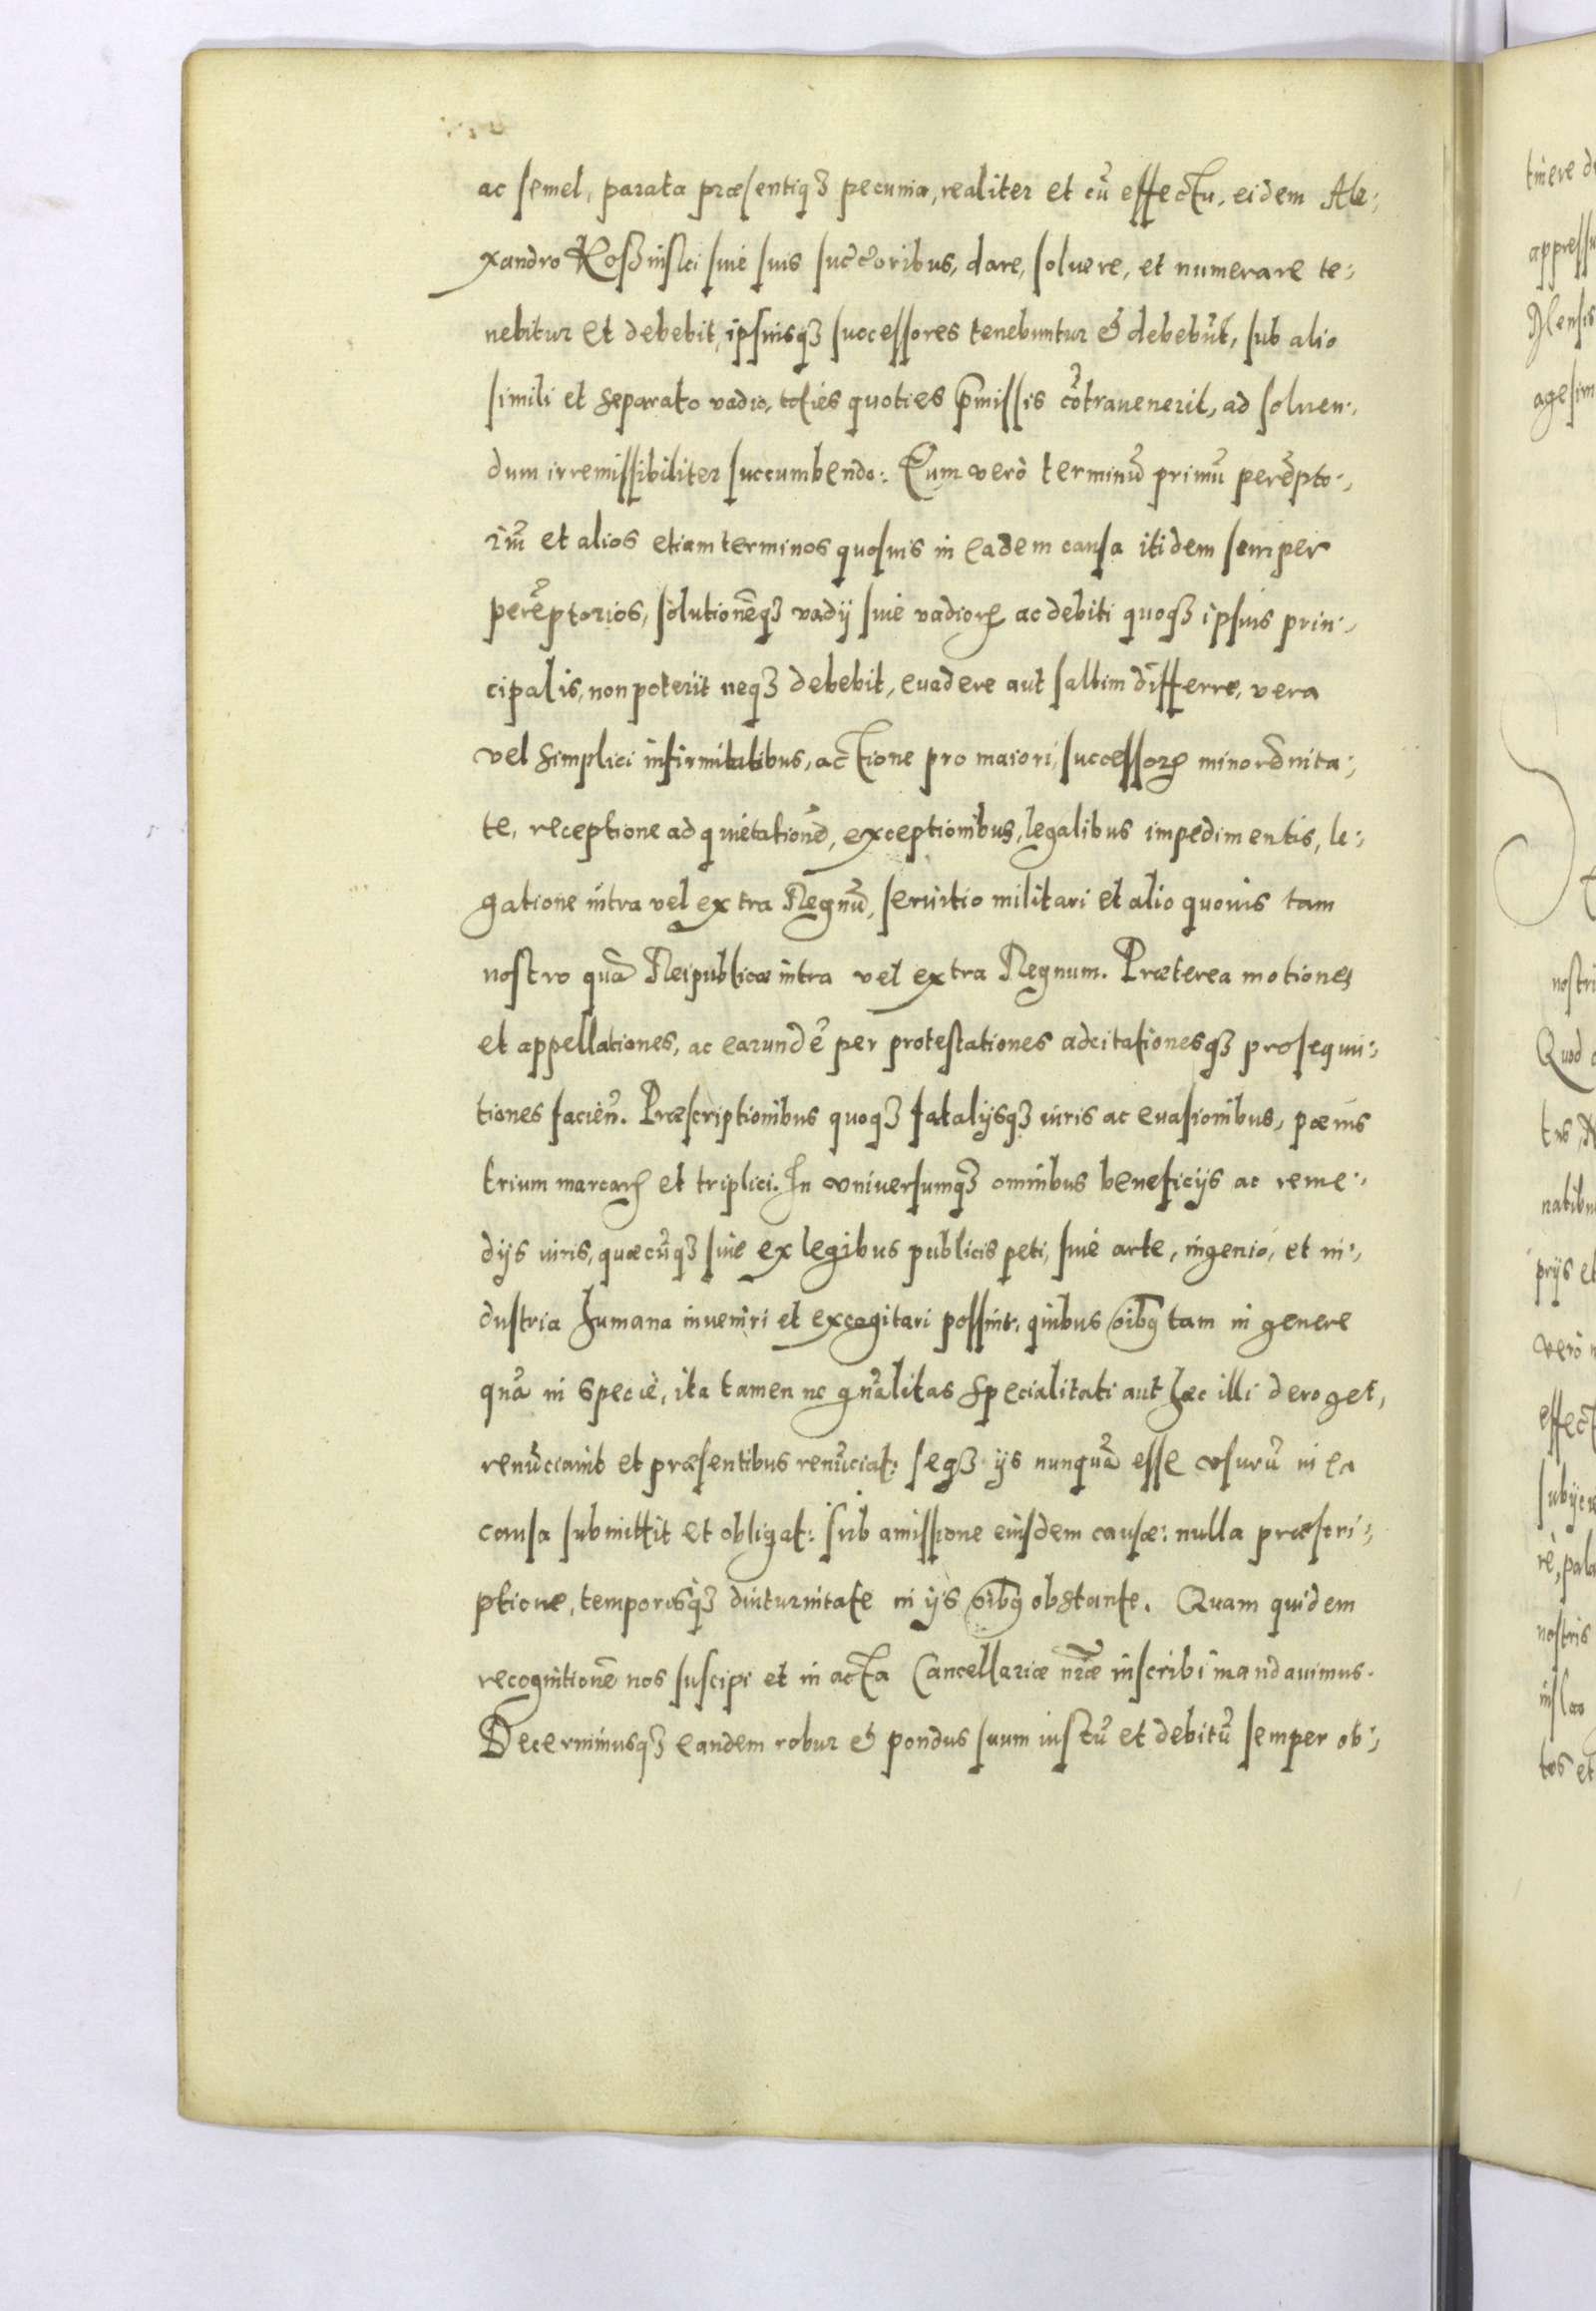 ac semel, parata præsentiqꝫ pecunia, realiter et cũ effectu, eidem Ale:,
xandro Koszinski siue suis succ̃oribus, dare, soluere, et numerare te:,
nebitur et debebit, ipsiusqꝫ successores tenebuntur & debebũt, sub alio
simili et separato vadio, toties quoties p̃missis cõtrauenerit, ad soluen:,
dum irremissibiliter succumbendo: Eum verò terminũ primũ perẽpto:,
iũ et alios etiam terminos quosuis in eadem causa itidem semper
perẽptorios, solutionẽqꝫ vadij siue vadioꝝ ac debiti quoqꝫ ipsius prin:,
cipalis, non poterit neqꝫ debebit, euadere aut saltim differre, vera
vel simplici infirmitatibus, actione pro maiori, successoꝝ minorẽnita:,
te, receptione ad quietationẽ, exceptionibus, legalibus impedimentis, le:,
gatione intra vel extra Regnũ, seruitio militari et alio quouis tam
nostro quã Reipublicæ intra vel extra Regnum. Præterea motiones
et appellationes, ac earundẽ per protestationes adcitationesqꝫ prosequu:,
tiones facien̄. Præscriptionibus quoqꝫ fatalijsqꝫ iuris ac euasionibus, pœnis
trium marcaꝝ et triplici. In vniuersumqꝫ omnibus beneficijs ac reme:,
dijs iuris, quæcũqꝫ siue ex legibus publicis peti, siue arte, ingenio, et in:,
dustria humana inueniri et excogitari possint, quibus oĩbꝯ tam in genere
quã in specie, ita tamen nè gñalitas specialitati aut hæc illi deroget,
renũciauit et præsentibus renũciat: seqꝫ ijs nunquã esse vsurũ in ea
causa submittit et obligat: sub amissione eiusdem causæ: nulla præscri:,
ptione, temporisqꝫ diuturnitate in ijs oĩbꝯ obstante. Quam quidem
recognitionẽ nos suscipi et in acta Cancellariæ nr̃æ inscribi mandauimus.
Decernimusqꝫ eandem robur & pondus suum iustũ et debitũ semper ob:,